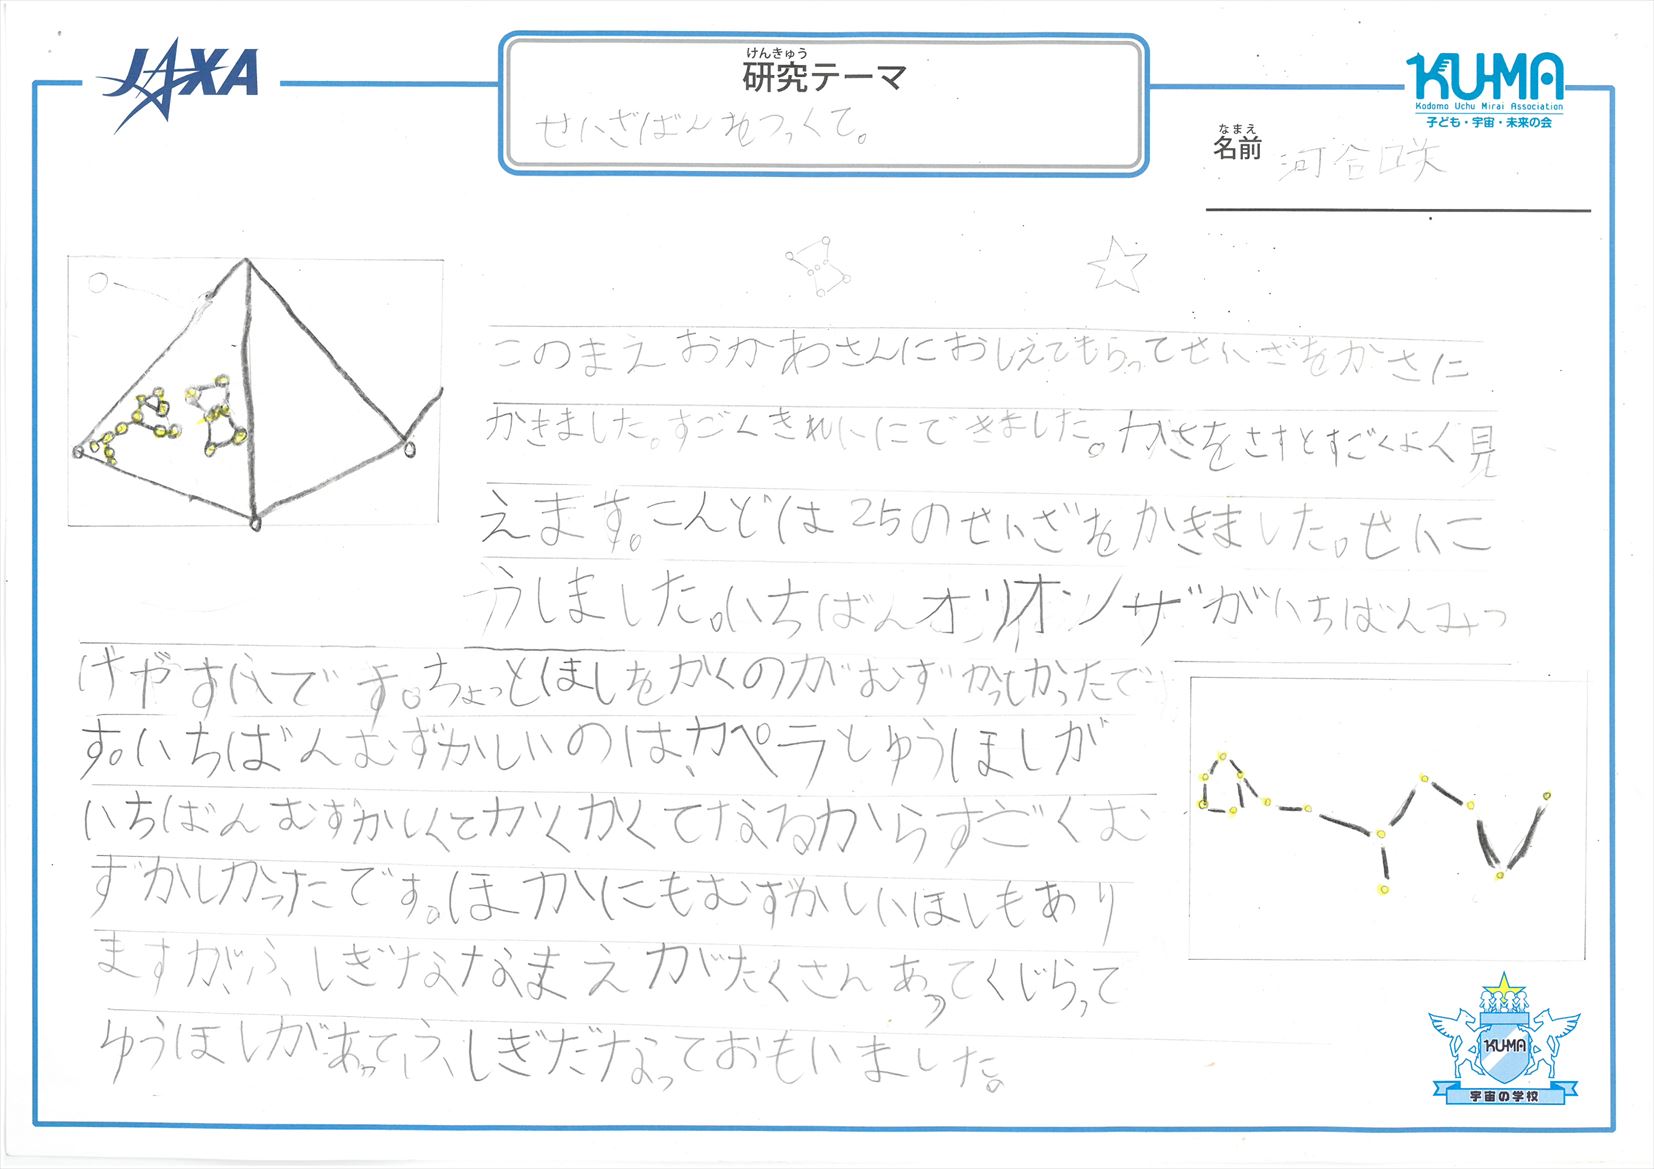 JAXA
けんきゅう
研究テーマ
せいざばんをつくて。
KU-MA
Kodomo Uchu Mirai Association
子ども・宇宙・未来の会
なまえ
名前 河谷咲
このまえおかあさんにおしえてもらってせいざをかさに
かきました。すごくきれいにできました。かさをさすとすごくよく見
えます。こんどは25のせいざをかきました。せいこ
うしました。いちばんオリオンザがいちばんみつ
けやすいです。ちょっとほしをかくのがむずかっしかったで
す。いちばんむずかしいのは、カペラとゆうほしが
いちばんむずかしくてかくかくてなるからすごくむ
ずかしかったです。ほかにもむずかしいほしもあり
ますが、ふしぎななまえがたくさんあってくじらって
ゆうほしがあって、ふしぎだなっておもいました。
KU-MA
宇宙の学校